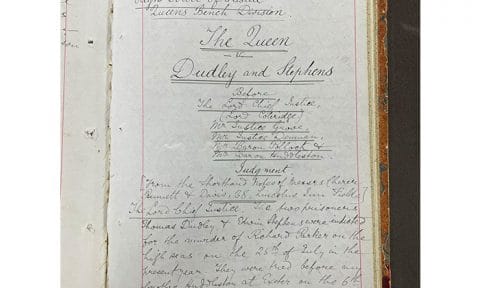 High Court of Justice
Queens Bench Division.
The Queen
v
Dudley and Stephens
Before
The Lord Chief Justice,
(Lord Coleridge)
Mr Justice Grove,
Mr Justice Denman,
Mr Baron Pollock &
Mr Baron Huddleston.
Judgment
[From the Shorthand Notes of Messrs
& 58, Lincolns Inn ]
The Lord Chief Justice. The two prisoners
Thomas Dudley & Edwin Stephens were indicted
for the murder of Richard Parker on the
high seas on the 25th of July in the
present year. They were tried before my
Huddleston at Exeter on the 6th